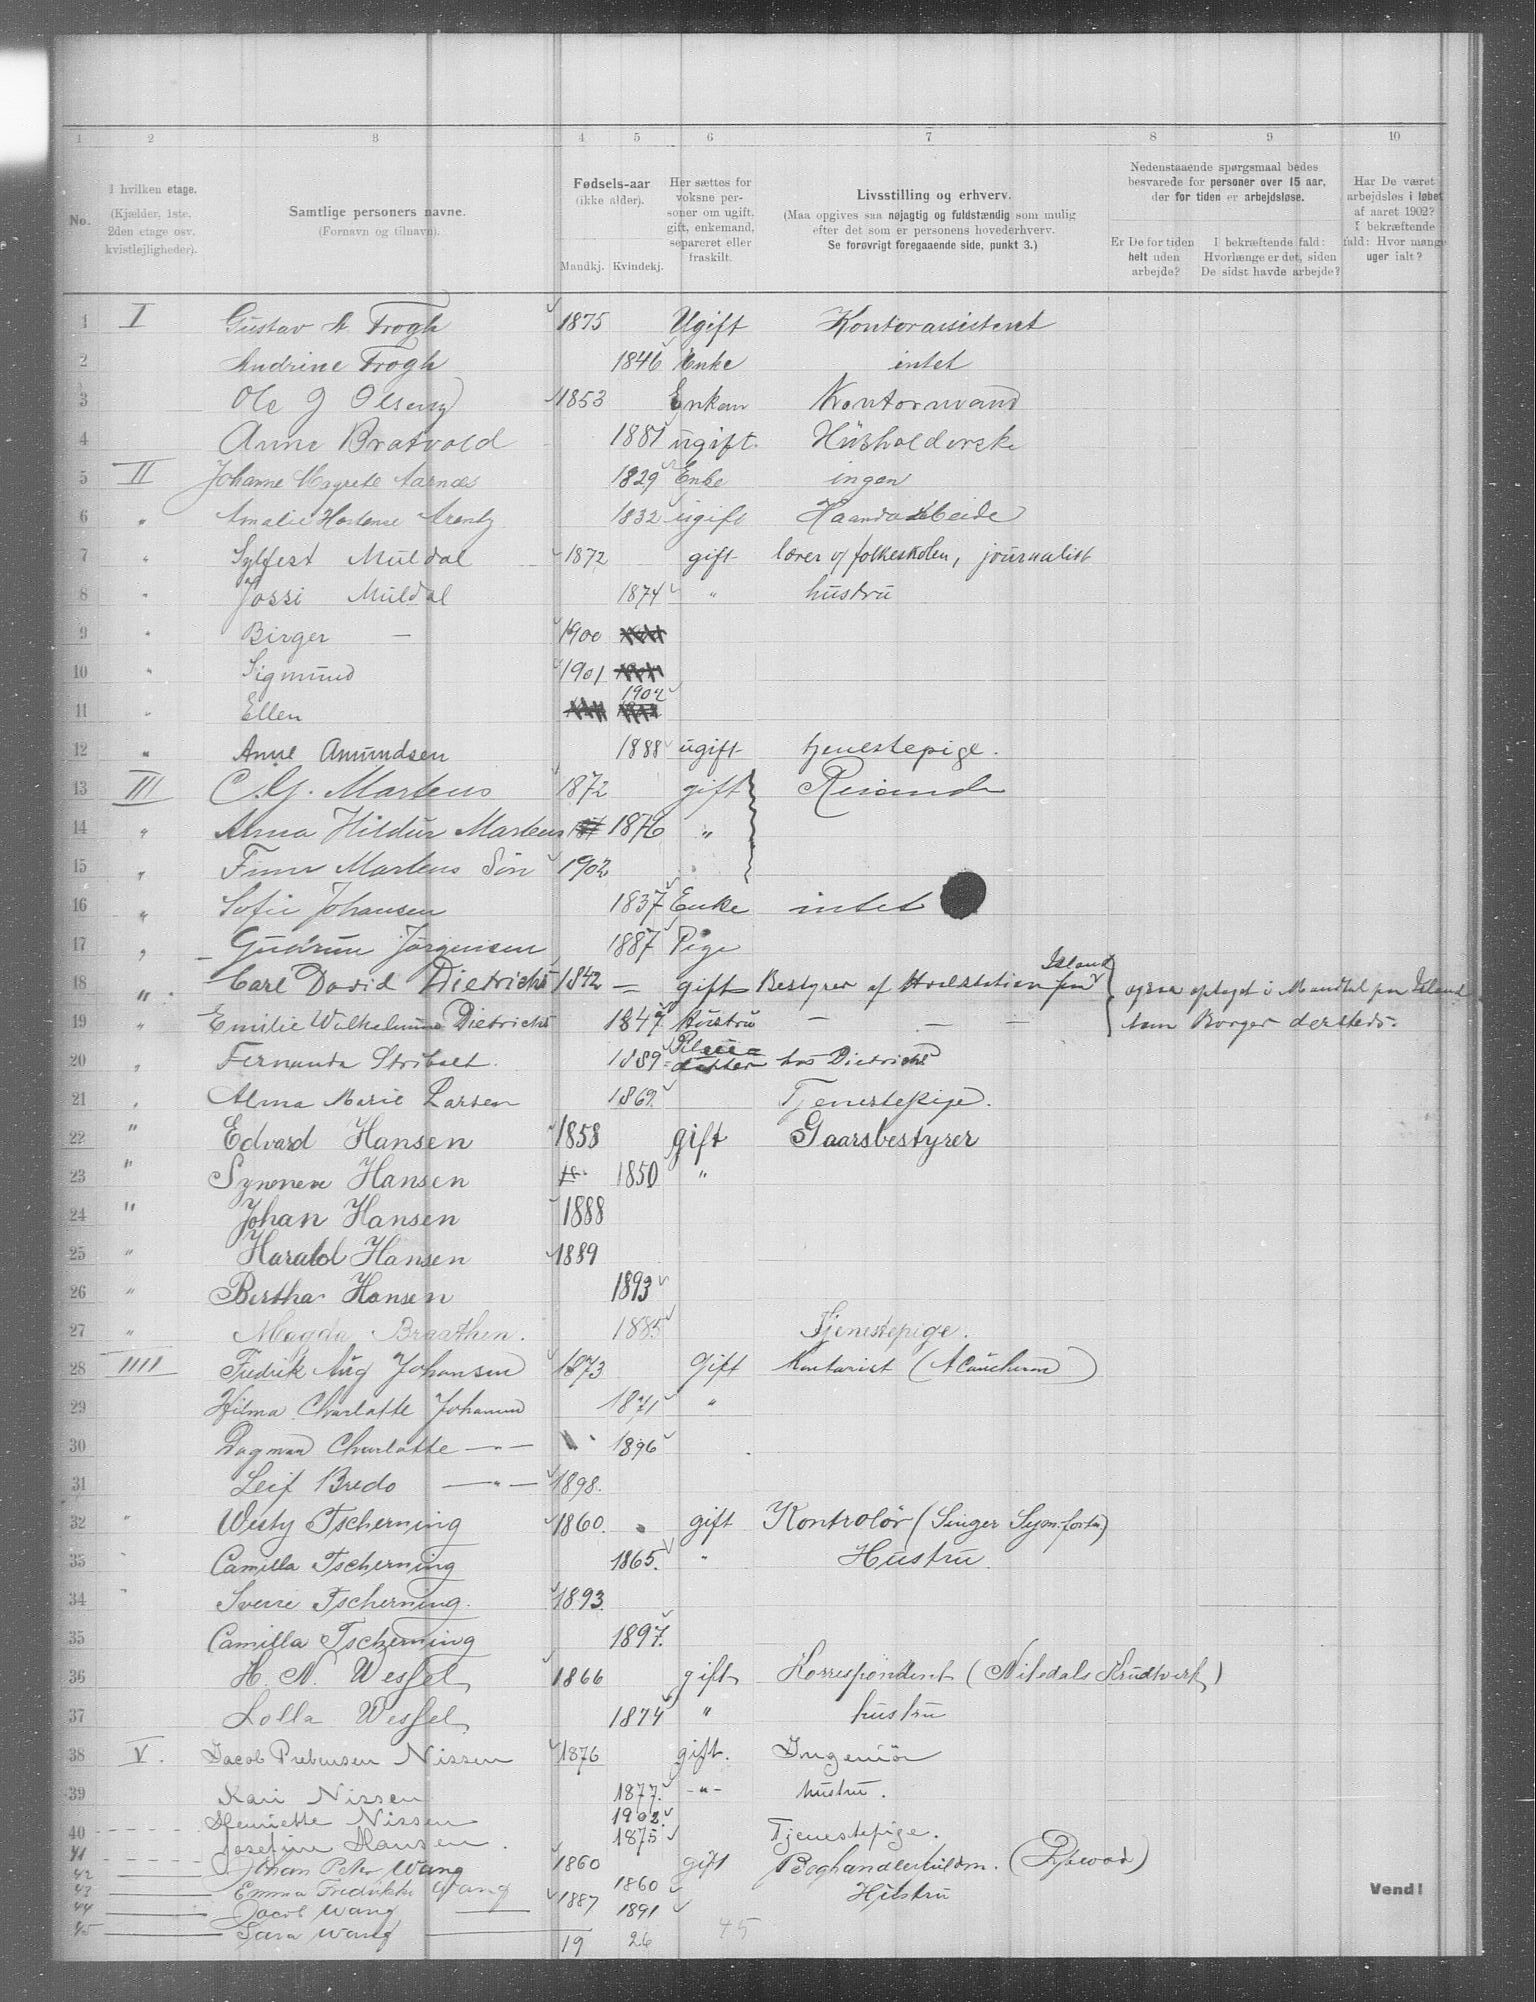 1 2 3 4 5 6 7 8 9 10
No.
I hvilken etage.
(Kjælder, 1ste, 2den etage osv. kvistlejligheder).
Samtlige personers navne.
(Fornavn og tilnavn).
Fødsels-aar
(ikke alder).
Mandkj. Kvindekj.
Her sættes for voksne personer om ugift, gift, enkemand, separeret eller fraskilt.
Livsstilling og erhverv.
(Maa opgives saa nøjagtig og fuldstændig som mulig
efter det som er personens hovederhverv.
Se forøvrigt foregaaende side, punkt 3.)
Nedenstaaende spørgsmaal bedes
besvarede for personer over 15 aar,
der for tiden er arbejdsløse.
Er De for tiden helt uden arbejde?
I bekræftende fald: Hvorlænge er det, siden De sidst havde arbejde?
Har De været arbejdsløs i løbet af aaret 1902? I bekræftende fald: Hvor mange uger ialt?
1 I Gustav A Trogh 1875 Ugift Kontorassistent
2 Andrine Trogh 1846 Enke intet
3 Ole J Olseng 1853 Enkem Kontormand
4 Anne Bratvold 1881 ugift. Husholderske
5 II Johanne Margrete Aarnæs 1829 Enke ingen
6 " Amalie Hortense Arentz 1832 ugift Haandarbeide
7 " Sylfest Muldal 1872 gift lærer v/ folkeskolen, journalist
8 " Jossi Muldal 1874 " hustru
9 " Birger — 1900
10 " Sigmund 1901
11 " Ellen 1902
12 " Anne Amundsen 1888 ugift tjenestepige.
13 III C. G. Martens 1872 gift Reisende
14 " Alma Hildur Martens 1876 "
15 " Finn Martens Søn 1902
16 " Sofie Johansen 1837 Enke intet
17 " Gudrun Jørgensen 1887 Pige
18 " Carl David Dietrichs 1842 — gift Bestyrer af Hvalstation paa Island ogsaa optaget i Mandtal paa Island
19 " Emilie Wilhelmine Dietrichs 1847 Hustru — — — som Borger dersteds.
20 " Fernanda Stribolt. 1889 Pleiedatter hos Dietrichs
21 " Alma Marie Larsen 1869 Tjenestepige.
22 " Edvard Hansen 1858 gift Gaarsbestyrer
23 " Synneve Hansen 1850 "
24 " Johan Hansen 1888
25 " Harald Hansen 1889
26 " Bertha Hansen 1893
27 " Magda Braathen. 1885 Tjenestepige.
28 IIII Fredrik Aug Johansen 1873 Gift Kontorist
29 Hilma Charlotte Johansen 1871 "
30 Dagmar Charlotte —"— 1896
31 Leif Bredo —"— 1898.
32 " Westy Tscherning 1860. gift Kontrolør (Singer Sym.forn)
33 " Camilla Tscherning 1865. " Hustru
34 " Sverre Tscherning. 1893.
35 Camilla Tscherning 1897.
36 H. N. Wessel 1866 gift Korrespondent (Nitedals Krudtverk)
37 Lolla Wessel 1874 " hustru
38 V. Jacob Prebensen Nissen 1876 gift. Ingeniør
39 Kari Nissen 1877. —"— hustru.
40 Henriette Nissen 1902.
41 Josefine Hansen. 1875 Tjenestepige.
42 Johan Peter Wang 1860 gift Boghandlerfuldm.
43 Emma Fredrikke Wang 1860 Hustru
44 Jacob Wang 1887
45 Sara Wang 1891
19 26 45
Vend!